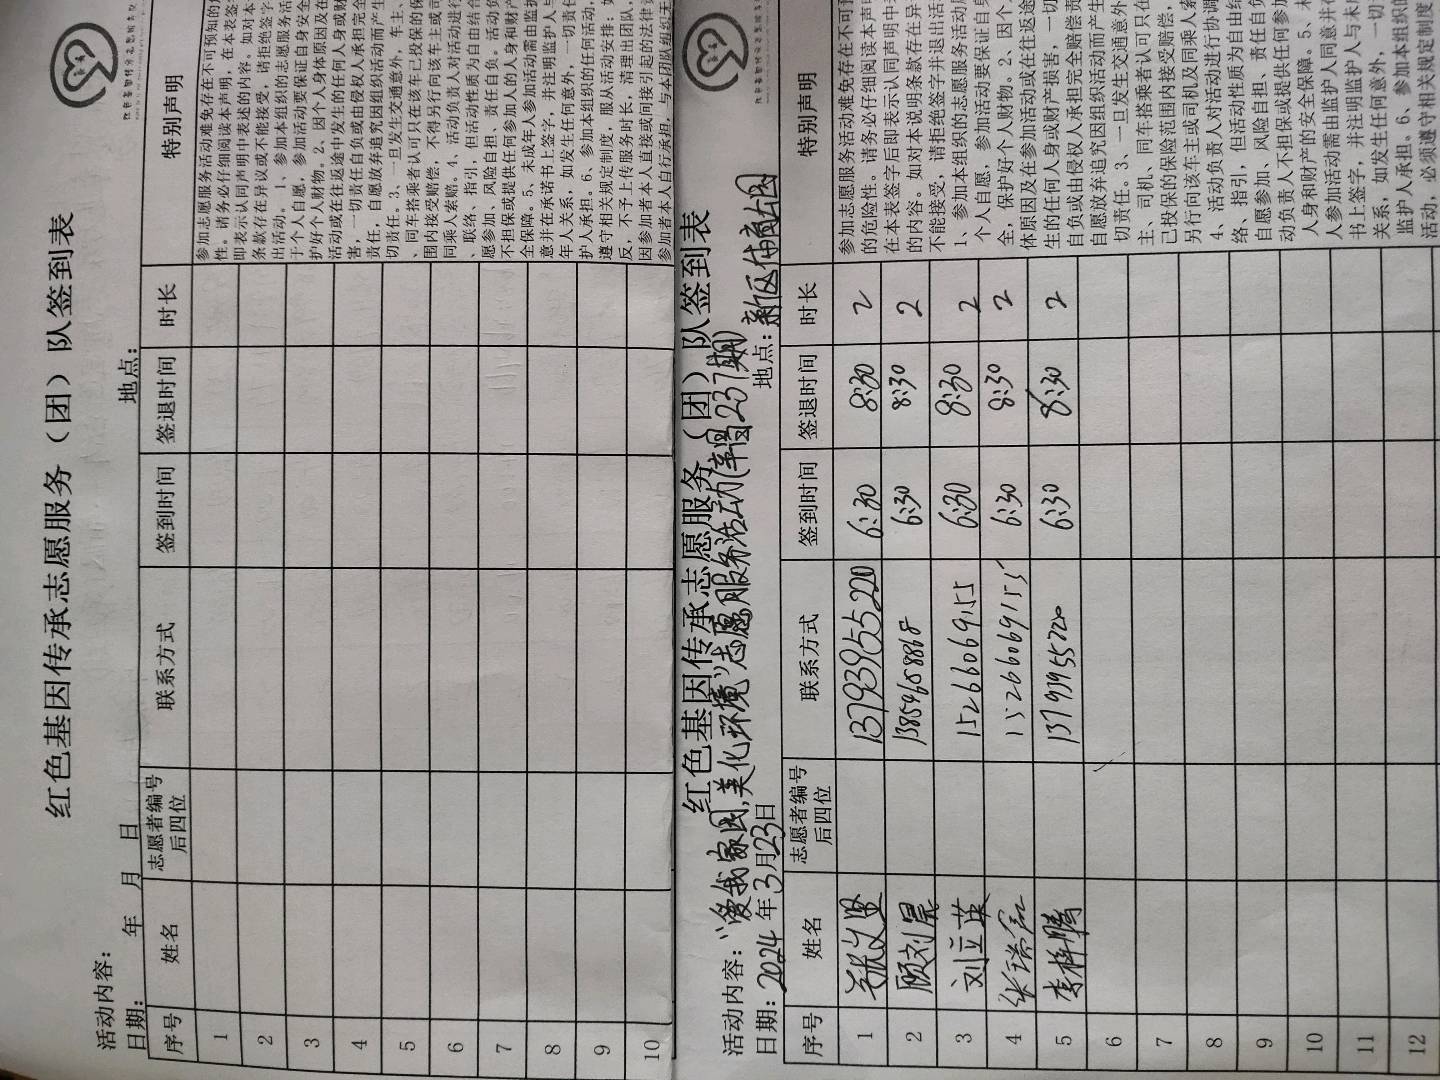 红色基因传承志愿服务（团）队签到表
活动内容：
日期： 年 月 日 地点：
序号 姓名 志愿者编号后四位 联系方式 签到时间 签退时间 时长 特别声明
1
2
3
4
5
6
7
8
9
10
参加志愿服务活动难免存在不可预知的
性。请务必仔细阅读本声明，在本表签
即表示认同声明中表述的内容。如对本
条款存在异议或不能接受，请拒绝签字
出活动。1、参加本组织的志愿服务活
于个人自愿，参加活动要保证自身安全
护好个人财物。2、因个人身体原因及在
活动或在往返途中发生的任何人身或财
害，一切责任自负或由侵权人承担完全
责任，自愿放弃追究因组织活动而产生
切责任。3、一旦发生交通意外，车主、
、司机、同车搭乘者认可只在该车已投保的保
围内接受赔偿，不得另行向该车主或司
同乘人索赔。4、活动负责人对活动进行
、联络、指引，但活动性质为自由结合
愿参加、风险自担、责任自负。活动负
不担保或提供任何参加人的人身和财产
全保障。5、未成年人参加活动需由监护
意并在承诺书上签字，并注明监护人与
年人关系，如发生任何意外，一切责任
护人承担。6、参加本组织的任何活动，
遵守相关规定制度，服从活动安排；如
反，不予上传服务时长，清理出团队，
因参加者本人直接或间接引起的法律
参加者本人自行承担，与本团队组织无
红色基因传承志愿服务（团）队签到表
活动内容：“爱我家园，美化环境”志愿服务活动(率昌237期)
日期：2024 年 3 月 23 日 地点：新区体育公园
序号 姓名 志愿者编号后四位 联系方式 签到时间 签退时间 时长 特别声明
1 13793955220 6:30 8:30 2
2 顾刘晨 13854688868 6:30 8:30 2
3 刘立英 15266069155 6:30 8:30 2
4 张瑞鑫 15266069155 6:30 8:30 2
5 李梓腾 13793955220 6:30 8:30 2
6
7
8
9
10
11
12
参加志愿服务活动难免存在不可预
的危险性。请务必仔细阅读本声明
在本表签字后即表示认同声明中
的内容。如对本说明条款存在异
不能接受，请拒绝签字并退出活
1、参加本组织的志愿服务活动
个人自愿，参加活动要保证自身
全，保护好个人财物。2、因个人
体原因及在参加活动或在往返途
生的任何人身或财产损害，一切
自负或由侵权人承担完全赔偿责
自愿放弃追究因组织活动而产生
切责任。3、一旦发生交通意外
主、司机、同车搭乘者认可只在
已投保的保险范围内接受赔偿，
另行向该车主或司机及同乘人索
4、活动负责人对活动进行协调
络、指引，但活动性质为自由结
自愿参加、风险自担、责任自负
动负责人不担保或提供任何参加
人身和财产的安全保障。5、未
人参加活动需由监护人同意并在
书上签字，并注明监护人与未成
关系，如发生任何意外，一切
监护人承担。6、参加本组织的
活动，必须遵守相关规定制度